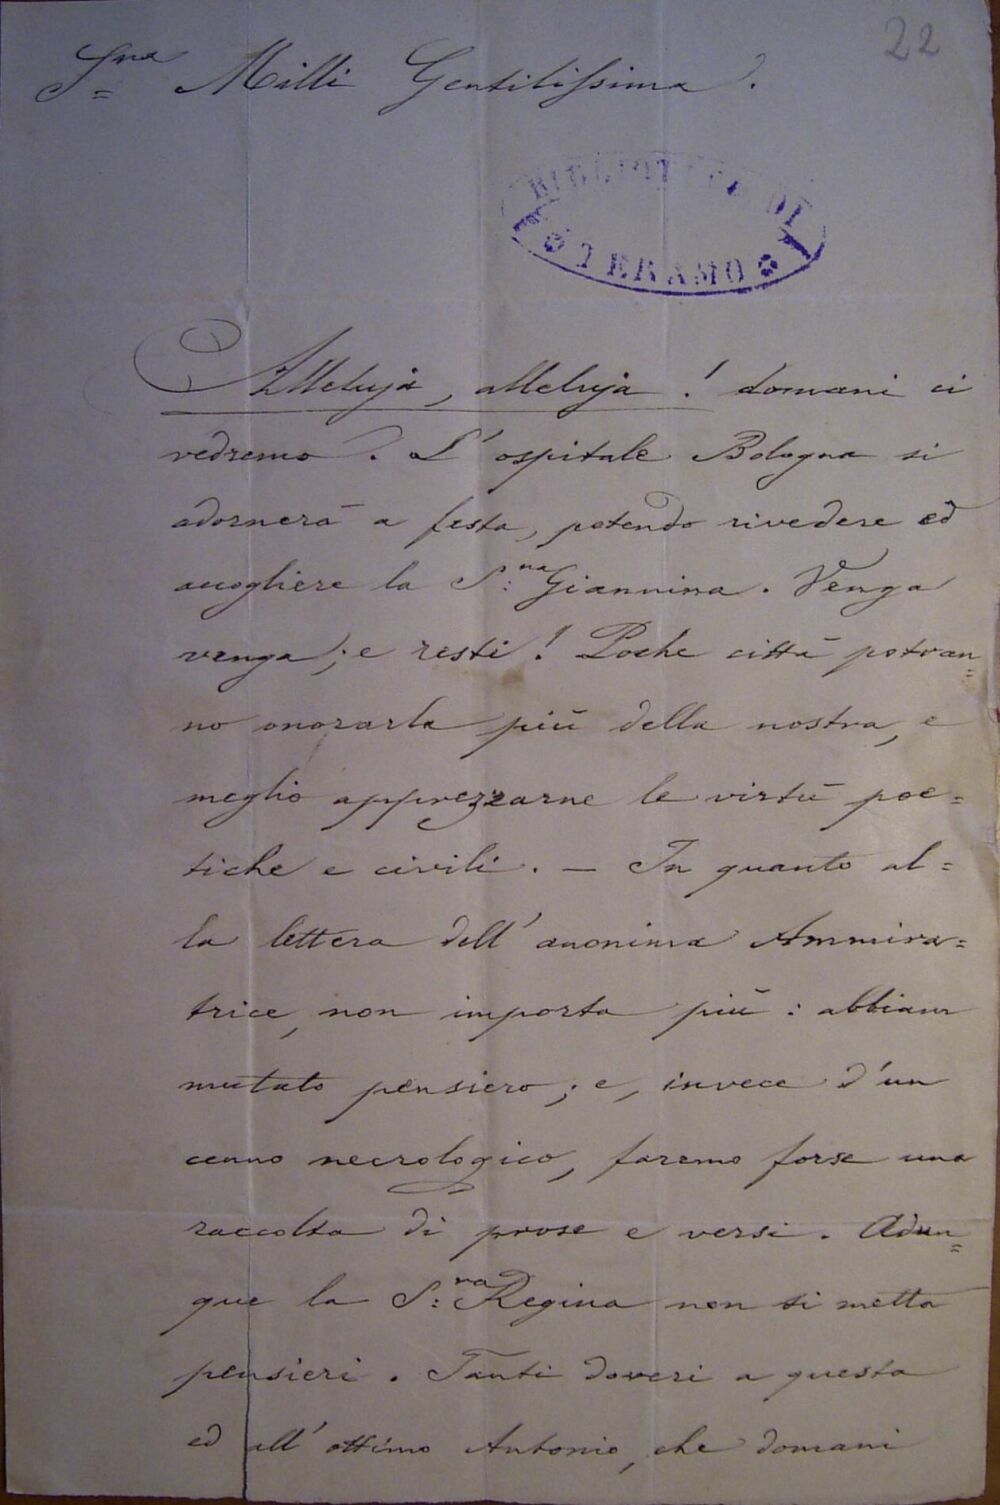 22
S.na Milli Gentilissima.
BIBLIOTECA DI
TERAMO
Alleluja, alleluja! domani ci
vedremo. L'ospitale Bologna si
adornerà a festa, potendo rivedere ed
accogliere la S:na Giannina. Venga
venga; e resti! Poche città potran=
no onorarla più della nostra, e
meglio apprezzarne le virtù poe=
tiche e civili. — In quanto al=
la lettera dell'anonima Ammira=
trice, non importa più: abbiam
mutato pensiero; e, invece d'un
cenno necrologico, faremo forse una
raccolta di prose e versi. Adun=
que la S:ra Regina non si metta
pensieri. Tanti doveri a questa
ed all'ottimo Antonio, che domani